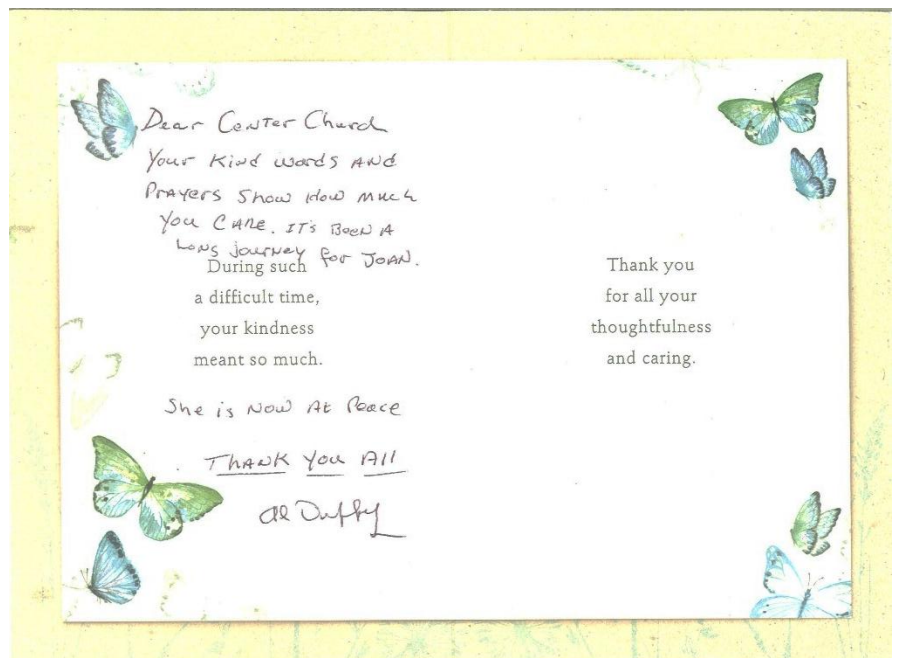 Dear Center Church
Your Kind words AND
PrAyers Show How Much
You CARE. IT's Been A
Long journey for JOAN.
During such
a difficult time,
your kindness
meant so much.
She is NOW At Peace
THANK You All
Al Duffy
Thank you
for all your
thoughtfulness
and caring.